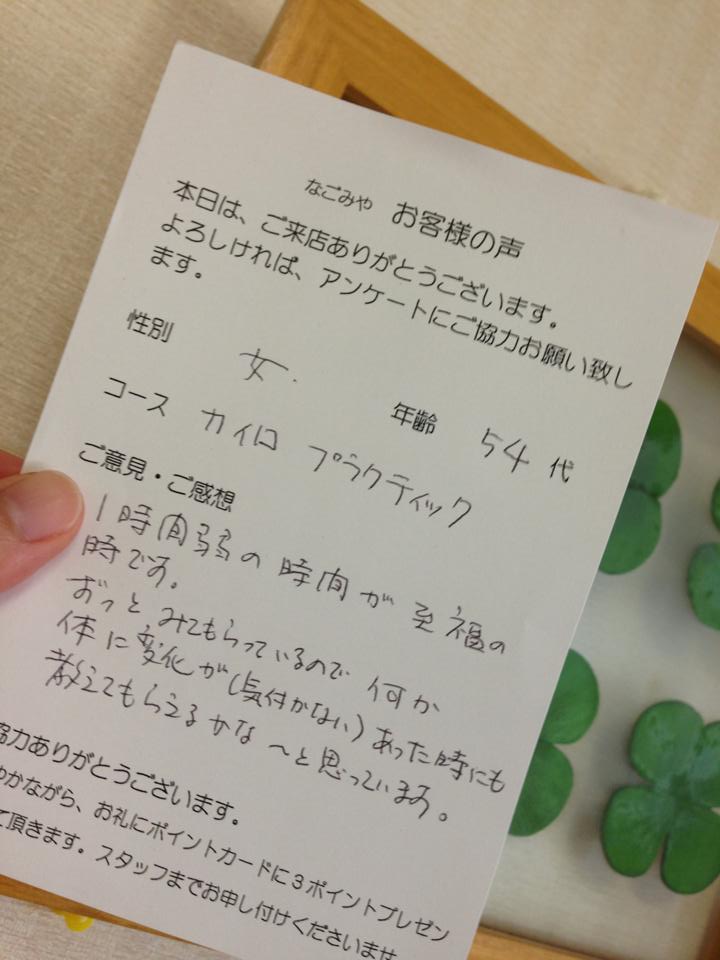 なごみや お客様の声
本日は、ご来店ありがとうございます。
よろしければ、アンケートにご協力お願い致し
ます。
性別 女. 年齢 54 代
コース カイロ プラクティック
ご意見・ご感想
1時間弱の時間が至福の
時です。
ずっとみてもらっているので何か
体に変化が(気付かない)あった時にも
教えてもらえるかな〜と思っています。
協力ありがとうございます。
やかながら、お礼にポイントカードに3ポイントプレゼン
て頂きます。スタッフまでお申し付けくださいませ